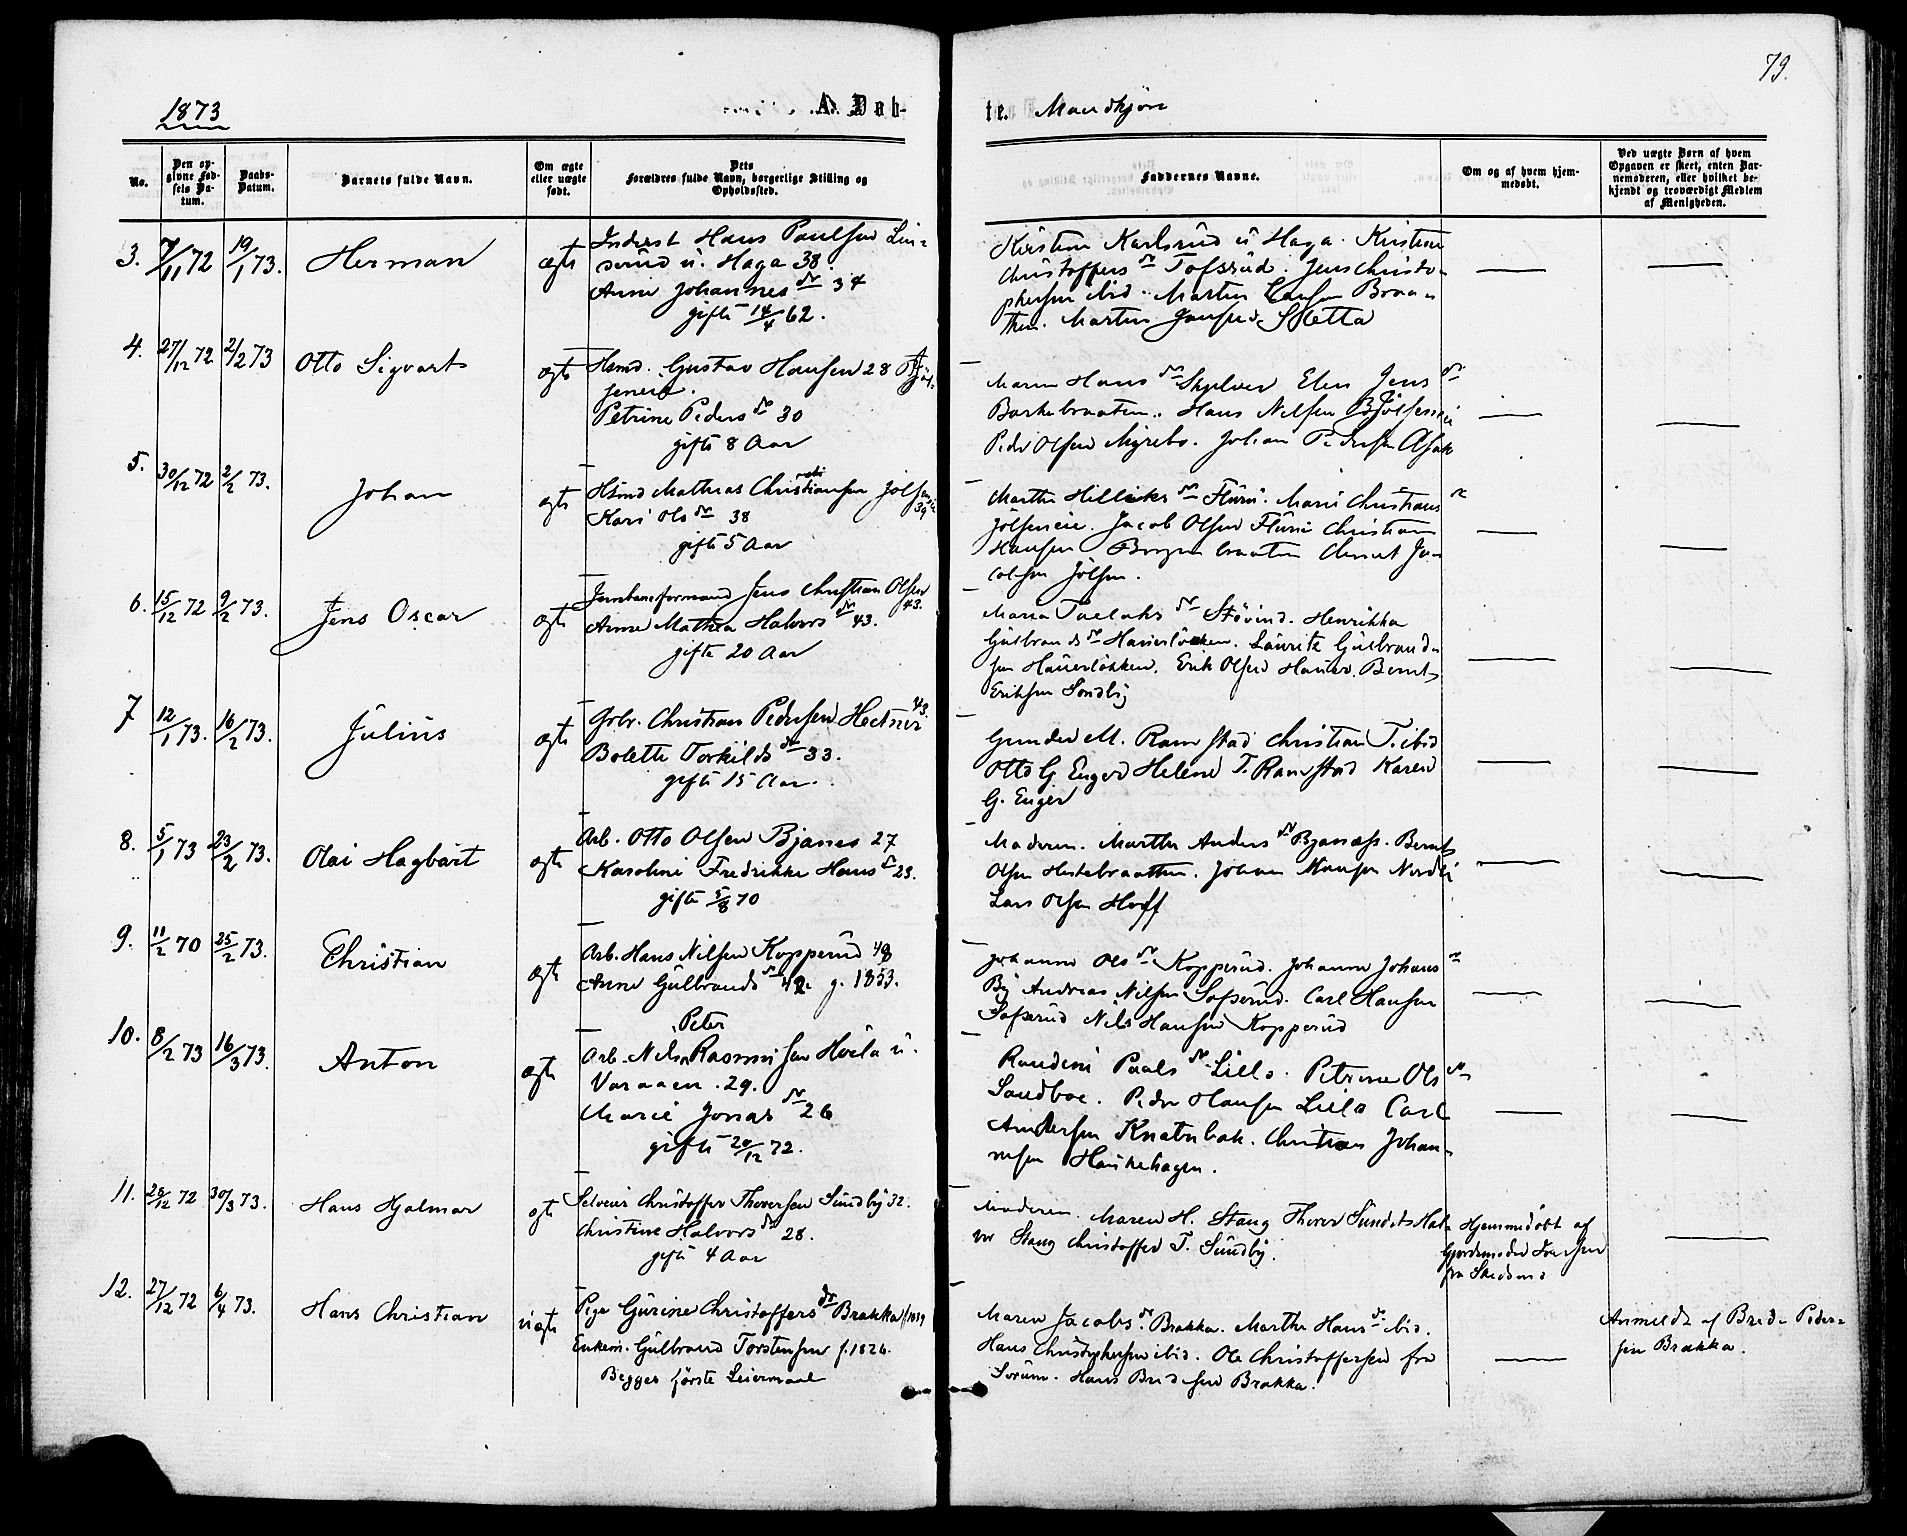 79.
1873
A. Døb-
te. Mandkjøn
No.
Den op-
givne Fød-
sels Da-
tum.
Daabs-
Datum.
Barnets fulde Navn.
Om ægte
eller uægte
født.
Dets
Forældres fulde Navn, borgerlige Stilling og
Opholdssted.
Faddernes Navne.
Om og af hvem hjem-
medøbt.
Ved uægte Børn af hvem
Opgaven er skeet, enten Bar-
nemoderen, eller hvilket be-
kjendt og troværdigt Medlem
af Menigheden.
3. 7/11 72 19/1 73. Herman ægte
Inderst Hans Paulsen Lin-
serud u. Haga 38.
Anne Johannesdr 34
gifte 14/4 62.
Kirstine Karlsrud u Haga. Kirstine
Christoffersdr Tofsrud. Jens Christo-
phersen ibid. Martin Larsen Braa-
then. Martin Jansen Sletta
4. 27/12 72 2/2 73 Otto Sigvart ægte
Hsmd. Gustav Hansen 28
Petrine Pedersdr 30
gifte 8 Aar
Maren Hansdr Skylver Elen Jensdr
Barkebraaten. Hans Nilsen
Peder Olsen Myrebo. Johan Pedersen Asak
5. 30/12 72 2/2 73. Johan ægte
Hsmd Mathias Christiansen Jølseneie 39
Kari Olsdr 38
gifte 5 Aar
Marthe dr Fluri. Marie Christiansdr
Jølseneie. Jacob Olsen Fluri Christian
Hansen Borgenbraaten Ja-
cobsen Jølsen.
6. 15/12 72 9/2 73. Jens Oscar ægte
Jernbaneformand Jens Christian Olsen 43.
Anne Mathea Halvorsdr 43.
gifte 20 Aar
Maria dr Støvind. Henrikka
Gulbrandsdr Hauerløkken. Lauritz Gulbrand-
sen Hauerløkken. Erik Olsen Hauer. Bernt
Eriksen Sondby
7 12/1 73. 16/2 73. Julius ægte
Gbr. Christian Pedersen Hectner 43.
Bolette Torkildsdr 33.
gifte 15 Aar.
Gunder M. Ramstad Christian T. ibid
Otto G. Enger Helene T. Ramstad Karen
G. Enger
8. 5/1 73 23/2 73. Olai Hagbart ægte
Arb. Otto Olsen Bjanes 27
Karoline Fredrikke Hansdr 23.
gifte 5/8 70
Moderen. Marthe Andersdr Bjanæss. Bernt
Olsen Hestebraathen. Johan Hansen Nordli
Lars Olsen Hoff
9. 11/2 70 25/2 73. Christian ægte
Arb. Hans Nilsen Kopperud 48
Anne Gulbrandsdr 42. g. 1853.
Johanne Olsdr Kopperud. Johanne Johansdr
By Andreas Nilsen Sofserud. Carl Hansen
Sofserud Nils Hansen Kopperud
10. 8/2 73 16/3 73. Anton ægte
Arb. Nils Peter Rasmussen Hvila u.
Varaaen. 29.
Marie Jonasdr 26
gifte 20/12 72.
Randine Paalsdr Lille. Petrine Olsdr
Sandboe. Peder Hansen Lille Carl
Andersen Knatnbak. Christian Johan-
nesen Haukehagen.
11. 26/12 72 30/3 73. Hans Hjalmar ægte
Selveier Christoffer Thoresen Sundby 32.
Christine Halvorsdr 28.
gifte 4 Aar
Moderen. Maren H. Stang Thorer Sundet Hal-
vor Stang Christoffer T. Sundby.
Hjemmedøbt af
Gjordemoder
fra Skedsmo
12. 27/12 72 6/4 73. Hans Christian uægte
Pige Gurine Christoffersdr Brakka f. 1839
Enkem. Gulbrand Torstensen f. 1826.
Begges første Leiermaal
Maren Jacobsdr. Brakka. Marthe Hansdr ibid.
Hans Christophersen ibid. Ole Christoffersen fra
Sørum. Hans Bredesen Brakka.
Anmeldt af Brede Peder-
sen Brakka.